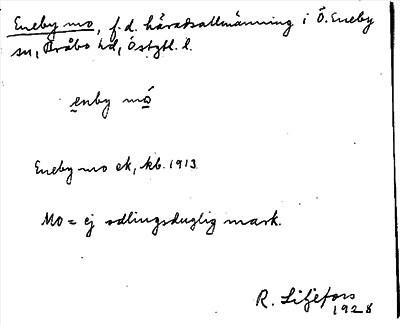 Eneby mo, f.d. häradsallmänning i Ö. Eneby
sn, Bråbo hd, Östgtl. l.
enby mó
Eneby mo ek, kb. 1913.
Mo = ej odlingsduglig mark.
R. Liljefors
1928